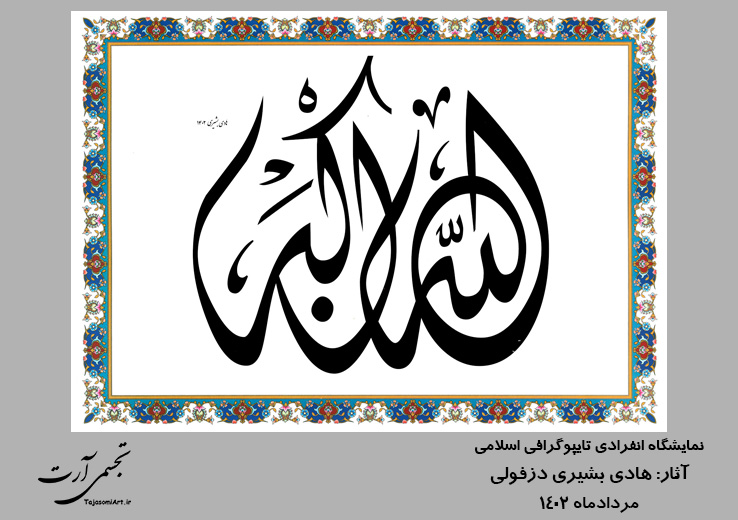 الله اکبر
هادی بشیری ۱۴۰۲
نمایشگاه انفرادی تایپوگرافی اسلامی
آثار: هادی بشیری دزفولی
مردادماه ۱۴۰۲
تجسمی آرت
TajasomiArt.ir